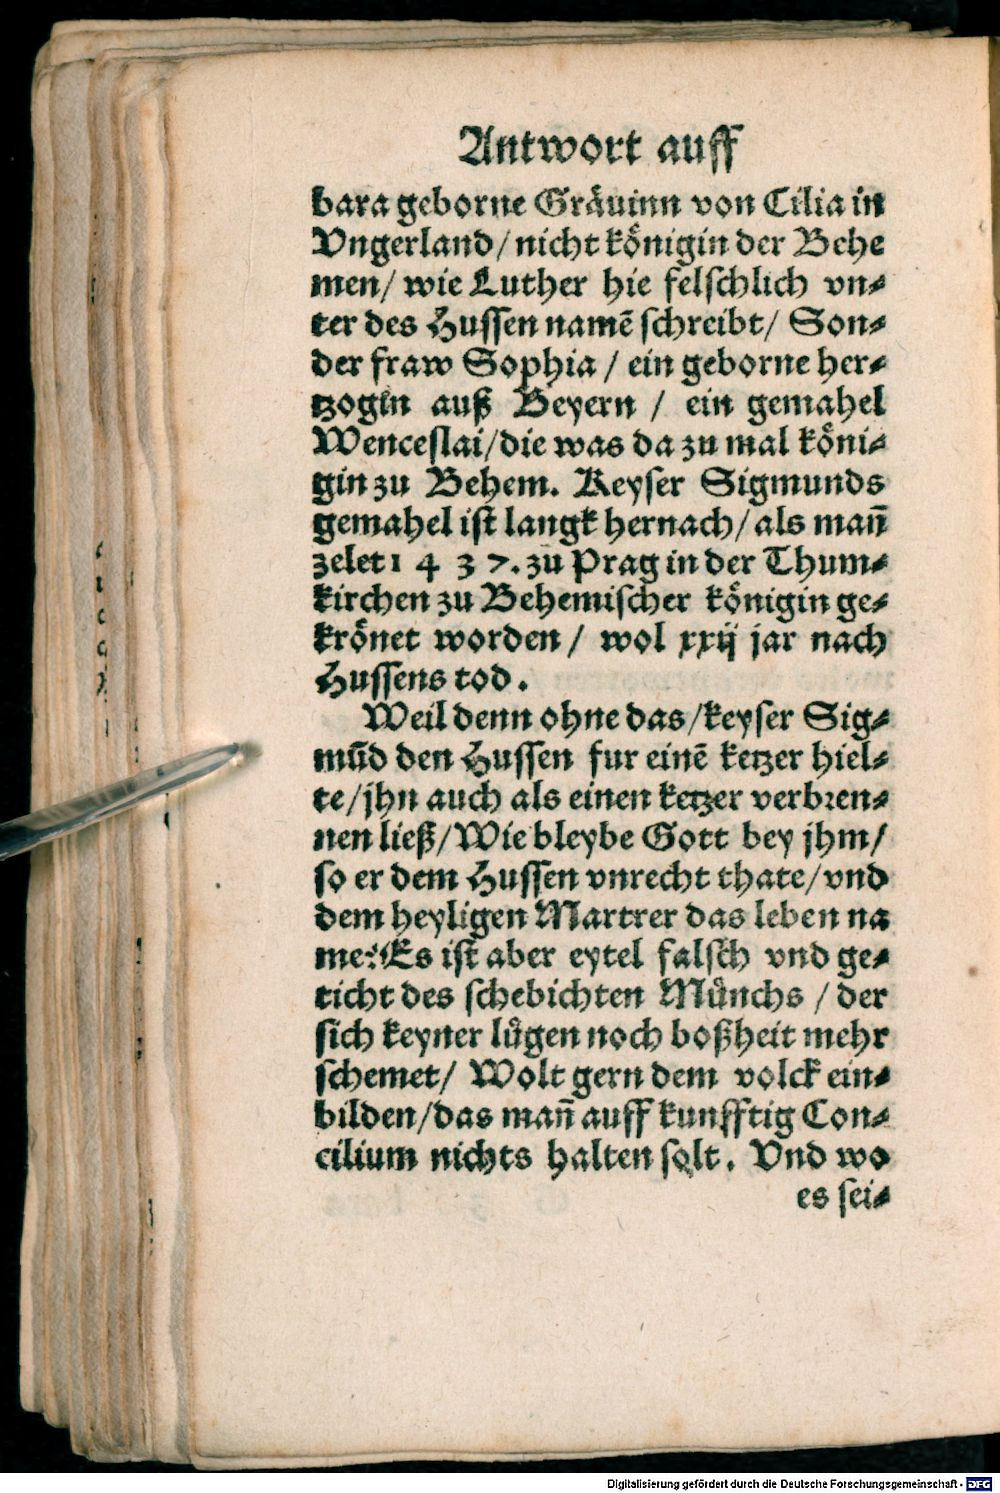 Antwort auff
bara geborne Gräuinn von Cilia in
Vngerland/ nicht königin der Behe
men/ wie Luther hie felschlich vn⸗
ter des Hussen namẽ schreibt/ Son⸗
der fraw Sophia / ein geborne her⸗
tzogin auß Beyern / ein gemahel
Wenceslai/die was da zu mal köni⸗
gin zu Behem. Keyser Sigmunds
gemahel ist langk hernach/ als mañ
zelet 1 4 3 7. zu Prag in der Thum⸗
kirchen zu Behemischer königin ge⸗
krönet worden / wol xxij jar nach
Hussens tod.
Weil denn ohne das/keyser Sig⸗
mũd den Hussen fur einẽ ketzer hiel⸗
te/jhn auch als einen ketzer verbꝛen⸗
nen ließ/Wie bleybe Gott bey jhm/
so er dem Hussen vnrecht thate/vnd
dem heyligen Martrer das leben na
me? Es ist aber eytel falsch vnd ge⸗
ticht des schebichten Můnchs / der
sich keyner lůgen noch boßheit mehr
schemet/ Wolt gern dem volck ein⸗
bilden/das mañ auff kunfftig Con⸗
cilium nichts halten solt. Vnd wo
es sei⸗
Digitalisierung gefördert durch die Deutsche Forschungsgemeinschaft - DFG